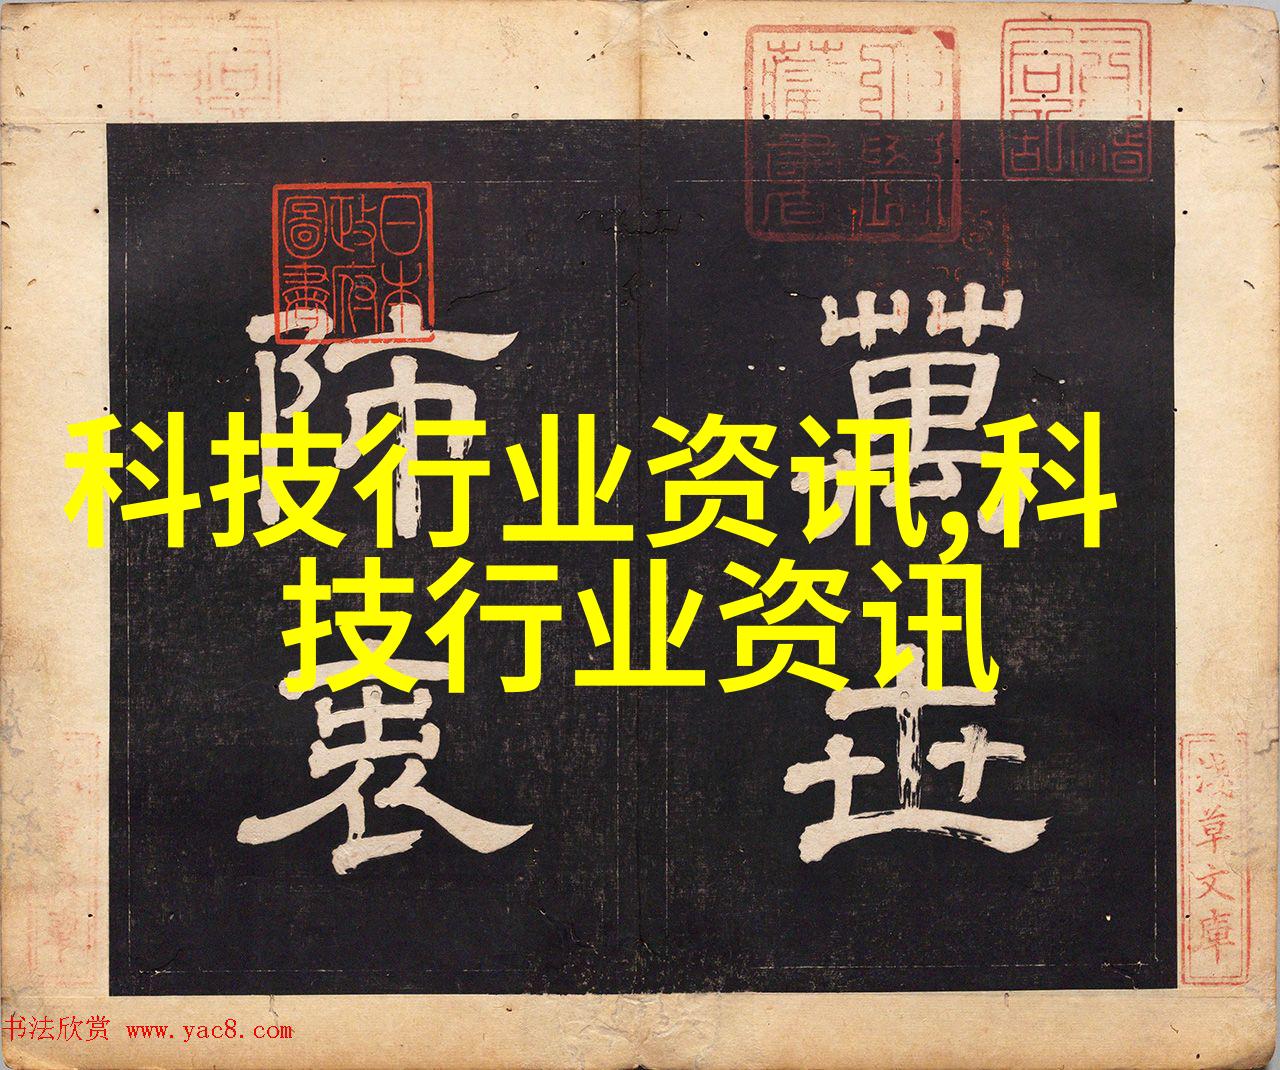 日本政府圖書
萬世
師表
科技行业资讯,科
技行业资讯
淺草文庫
书法欣赏 www.yac8.com